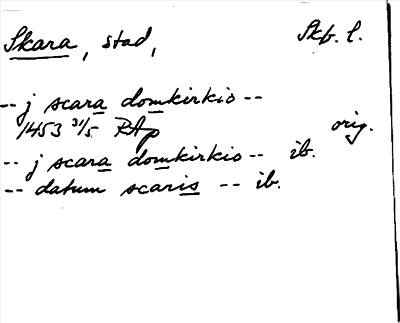 Skara, stad, Skb. l.
-- j scara domkirkio --
1453 31/5 RAp orig.
-- j scara domkirkio -- ib.
-- datum scaris -- ib.